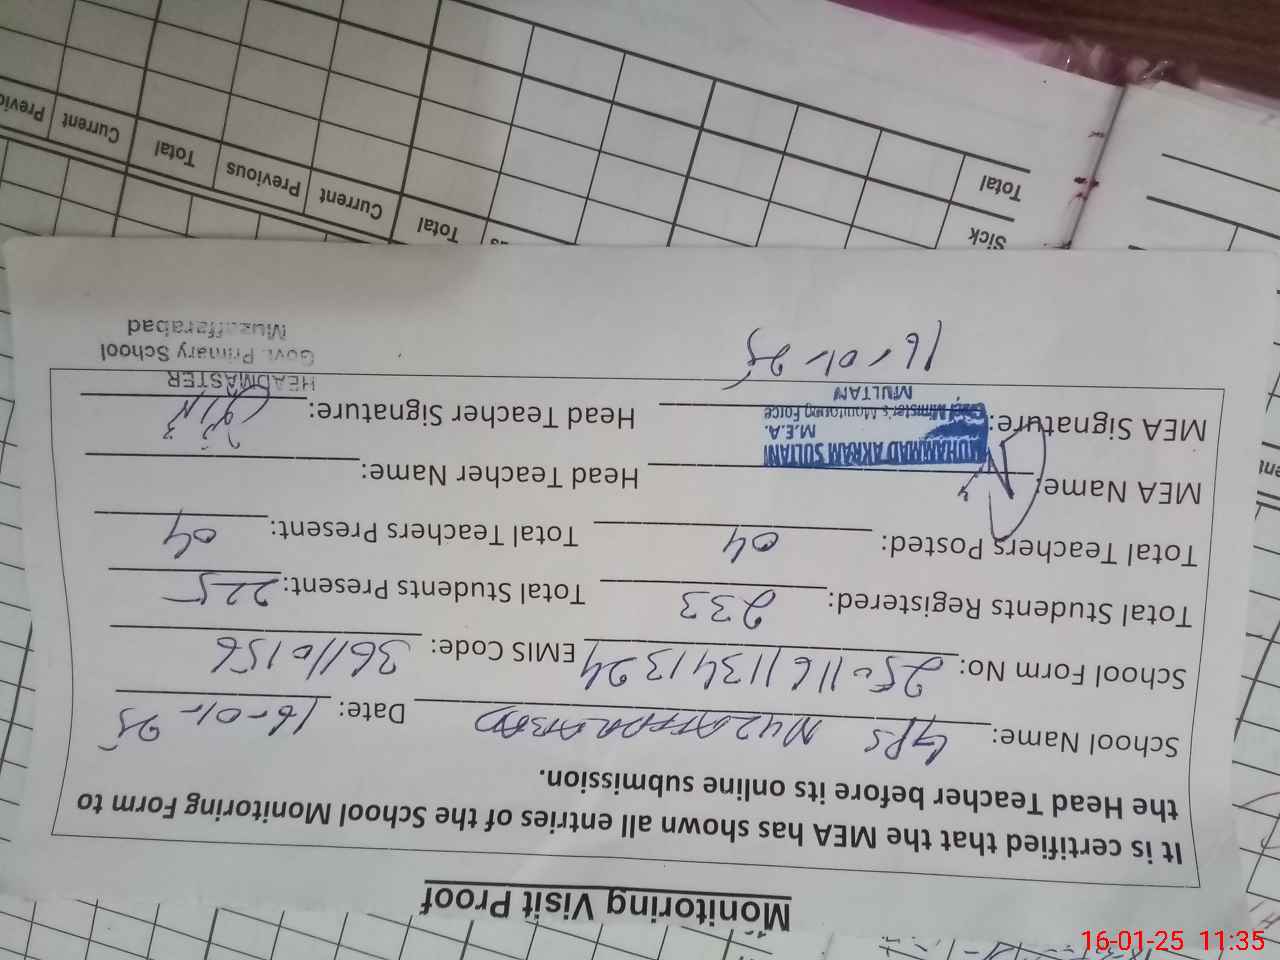 Monitoring Visit Proof
It is certified that the MEA has shown all entries of the School Monitoring Form to
the Head Teacher before its online submission.
School Name: GPS MUZAFFARABAD Date: 16-01-25
School Form No: EMIS Code: 36110156
Total Students Registered: 233 Total Students Present: 225
Total Teachers Posted: 04 Total Teachers Present: 04
MEA Name: Head Teacher Name:
MUHAMMAD AKRAM SULTANI
M.E.A.
Chief Minister's Monitoring Force
MULTAN
MEA Signature: Head Teacher Signature:
HEADMASTER
Govt. Primary School
Muzaffarabad
16-01-25
Sick
Total
Total Current Previous Total Current
16-01-25 11:35